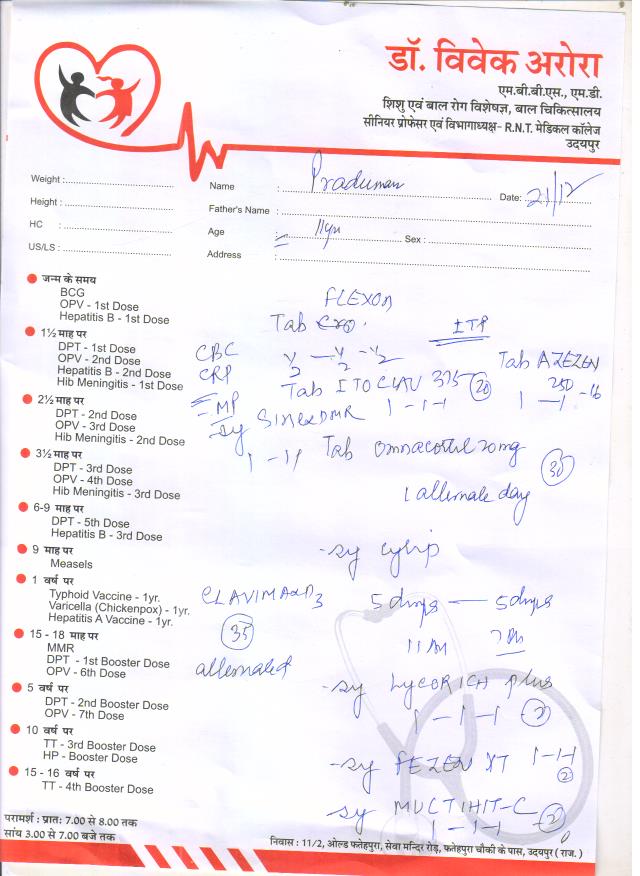 डॉ. विवेक अरोरा
एम.बी.बी.एस., एम.डी.
शिशु एवं बाल रोग विशेषज्ञ, बाल चिकित्सालय
सीनियर प्रोफेसर एवं विभागाध्यक्ष- R.N.T. मेडिकल कॉलेज
उदयपुर
Weight :
Height :
HC :
US/LS :
Name : Praduman
Date: 21/12
Father's Name :
Age : 11yr Sex :
Address :
जन्म के समय
BCG
OPV - 1st Dose
Hepatitis B - 1st Dose
1½ माह पर
DPT - 1st Dose
OPV - 2nd Dose
Hepatitis B - 2nd Dose
Hib Meningitis - 1st Dose
2½ माह पर
DPT - 2nd Dose
OPV - 3rd Dose
Hib Meningitis - 2nd Dose
3½ माह पर
DPT - 3rd Dose
OPV - 4th Dose
Hib Meningitis - 3rd Dose
6-9 माह पर
DPT - 5th Dose
Hepatitis B - 3rd Dose
9 माह पर
Measels
1 वर्ष पर
Typhoid Vaccine - 1yr.
Varicella (Chickenpox) - 1yr.
Hepatitis A Vaccine - 1yr.
15 - 18 माह पर
MMR
DPT - 1st Booster Dose
OPV - 6th Dose
5 वर्ष पर
DPT - 2nd Booster Dose
OPV - 7th Dose
10 वर्ष पर
TT - 3rd Booster Dose
HP - Booster Dose
15 - 16 वर्ष पर
TT - 4th Booster Dose
FLEXON
Tab
ITP
CBC
CRP
MP
½ - ½ - ½
Tab AZEZEN
250
1 - 1 - 16
Tab ITOCLAV 375 20
1 - 1 - 1
Sy
1 - 1 1
Tab omnacortil 20mg
30
1 alternate day
- Sy
35
5 days - 5 days
- Sy LYCORICH plus
1 - 1 - 1 2
- Sy FEZEN XT 1-1-1
2
Sy MULTIHIT-C 2
1 - 1 - 1
परामर्श : प्रातः 7.00 से 8.00 तक
सांय 3.00 से 7.00 बजे तक
निवास : 11/2, ओल्ड फतेहपुरा, सेवा मन्दिर रोड़, फतेहपुरा चौकी के पास, उदयपुर ( राज. )